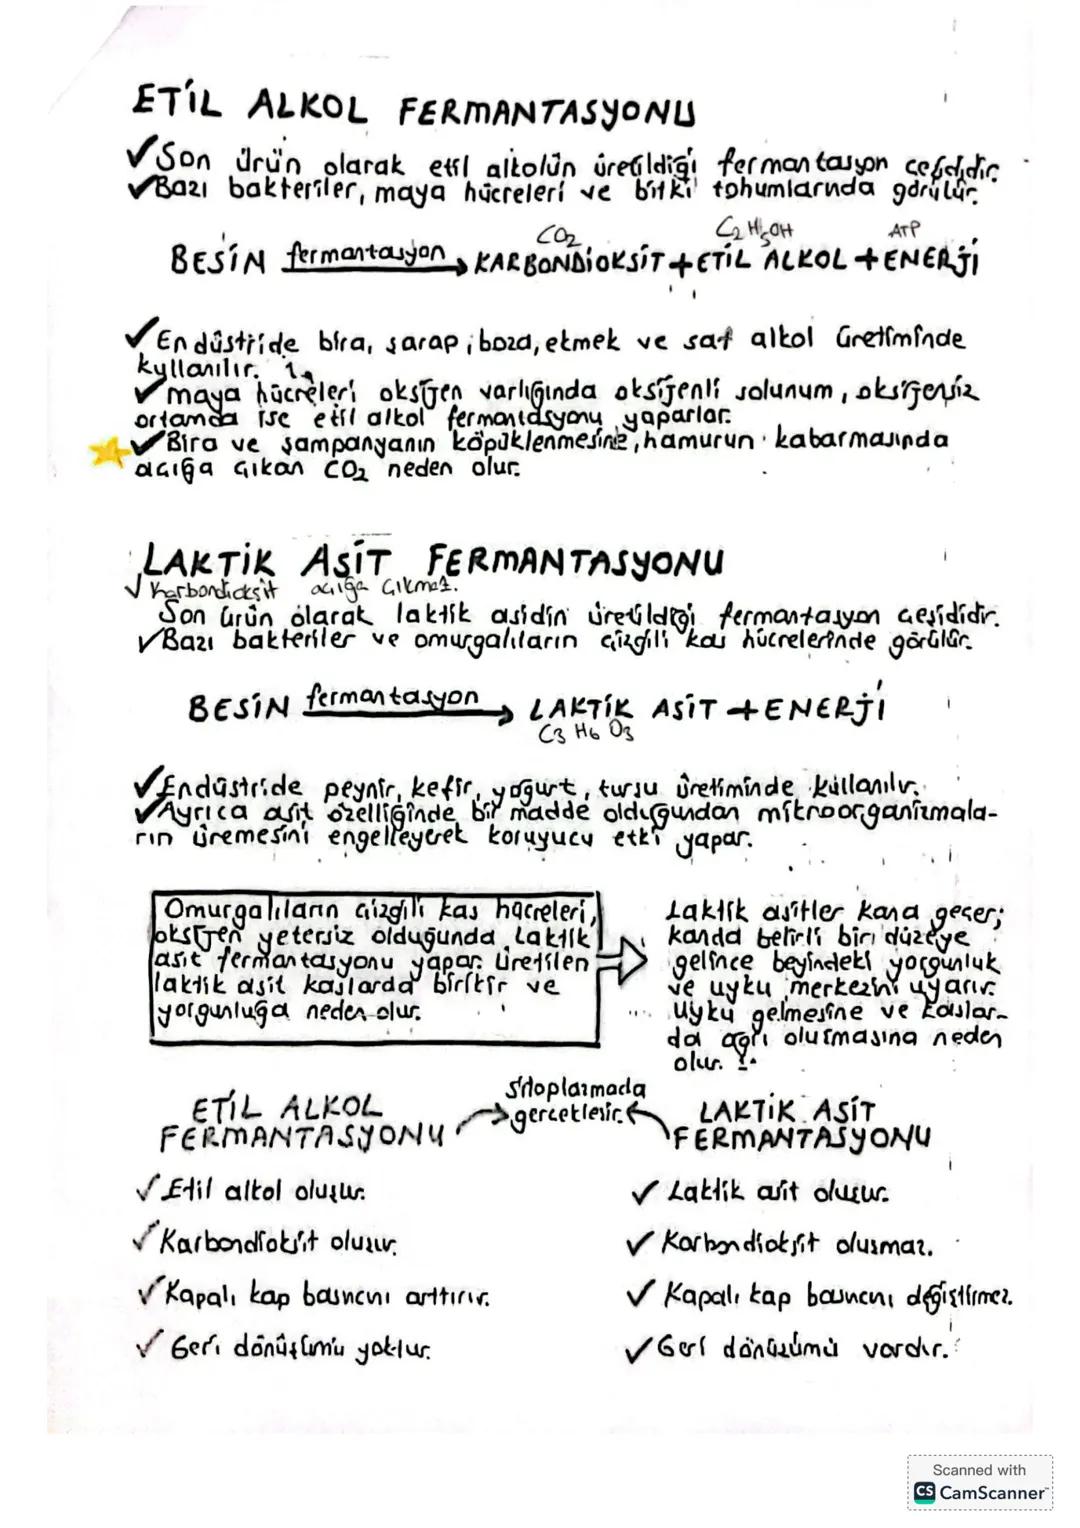 ETİL ALKOL FERMANTASYONU
✓Son ürün olarak etil alkolün üretildiği fermantasyon çeşididir.
✓Bazı bakteriler, maya hücreleri ve bitki tohumlarında görülür.
CO2 C2H5OH ATP
BESİN fermantasyon → KARBONDİOKSİT + ETİL ALKOL + ENERJİ
✓Endüstride bira, şarap, boza, ekmek ve saf alkol üretiminde
kullanılır.
✓maya hücreleri oksijen varlığında oksijenli solunum, oksijensiz
ortamda ise etil alkol fermantasyonu yaparlar.
✓Bira ve şampanyanın köpüklenmesine, hamurun kabarmasında
açığa çıkan CO2 neden olur.
LAKTİK ASİT FERMANTASYONU
✓ Karbondioksit açığa çıkmaz.
Son ürün olarak laktik asidin üretildiği fermantasyon çeşididir.
✓Bazı bakteriler ve omurgalıların çizgili kas hücrelerinde görülür.
BESİN fermantasyon → LAKTİK ASİT + ENERJİ
C3 H6 O3
✓Endüstride peynir, kefir, yoğurt, turşu üretiminde kullanılır.
✓Ayrıca asit özelliğinde bir madde olduğundan mikroorganizmala-
rın üremesini engelleyerek koruyucu etki yapar.
Omurgalıların çizgili kas hücreleri,
oksijen yetersiz olduğunda laktik
asit fermantasyonu yapar. Üretilen
laktik asit kaslarda birikir ve
yorgunluğa neden olur.
Laktik asitler kana geçer;
kanda belirli bir düzeye
gelince beyindeki yorgunluk
ve uyku merkezini uyarır.
Uyku gelmesine ve kaslar-
da ağrı oluşmasına neden
olur.
Sitoplazmada
gerçekleşir.
ETİL ALKOL
FERMANTASYONU
✓ Etil alkol oluşur.
✓ Karbondioksit oluşur.
✓ Kapalı kap basıncını arttırır.
✓ Geri dönüşümü yoktur.
LAKTİK ASİT
FERMANTASYONU
✓ Laktik asit oluşur.
✓ Karbondioksit oluşmaz.
✓ Kapalı kap basıncını değiştirmez.
✓ Geri dönüşümü vardır.
Scanned with
CS CamScanner